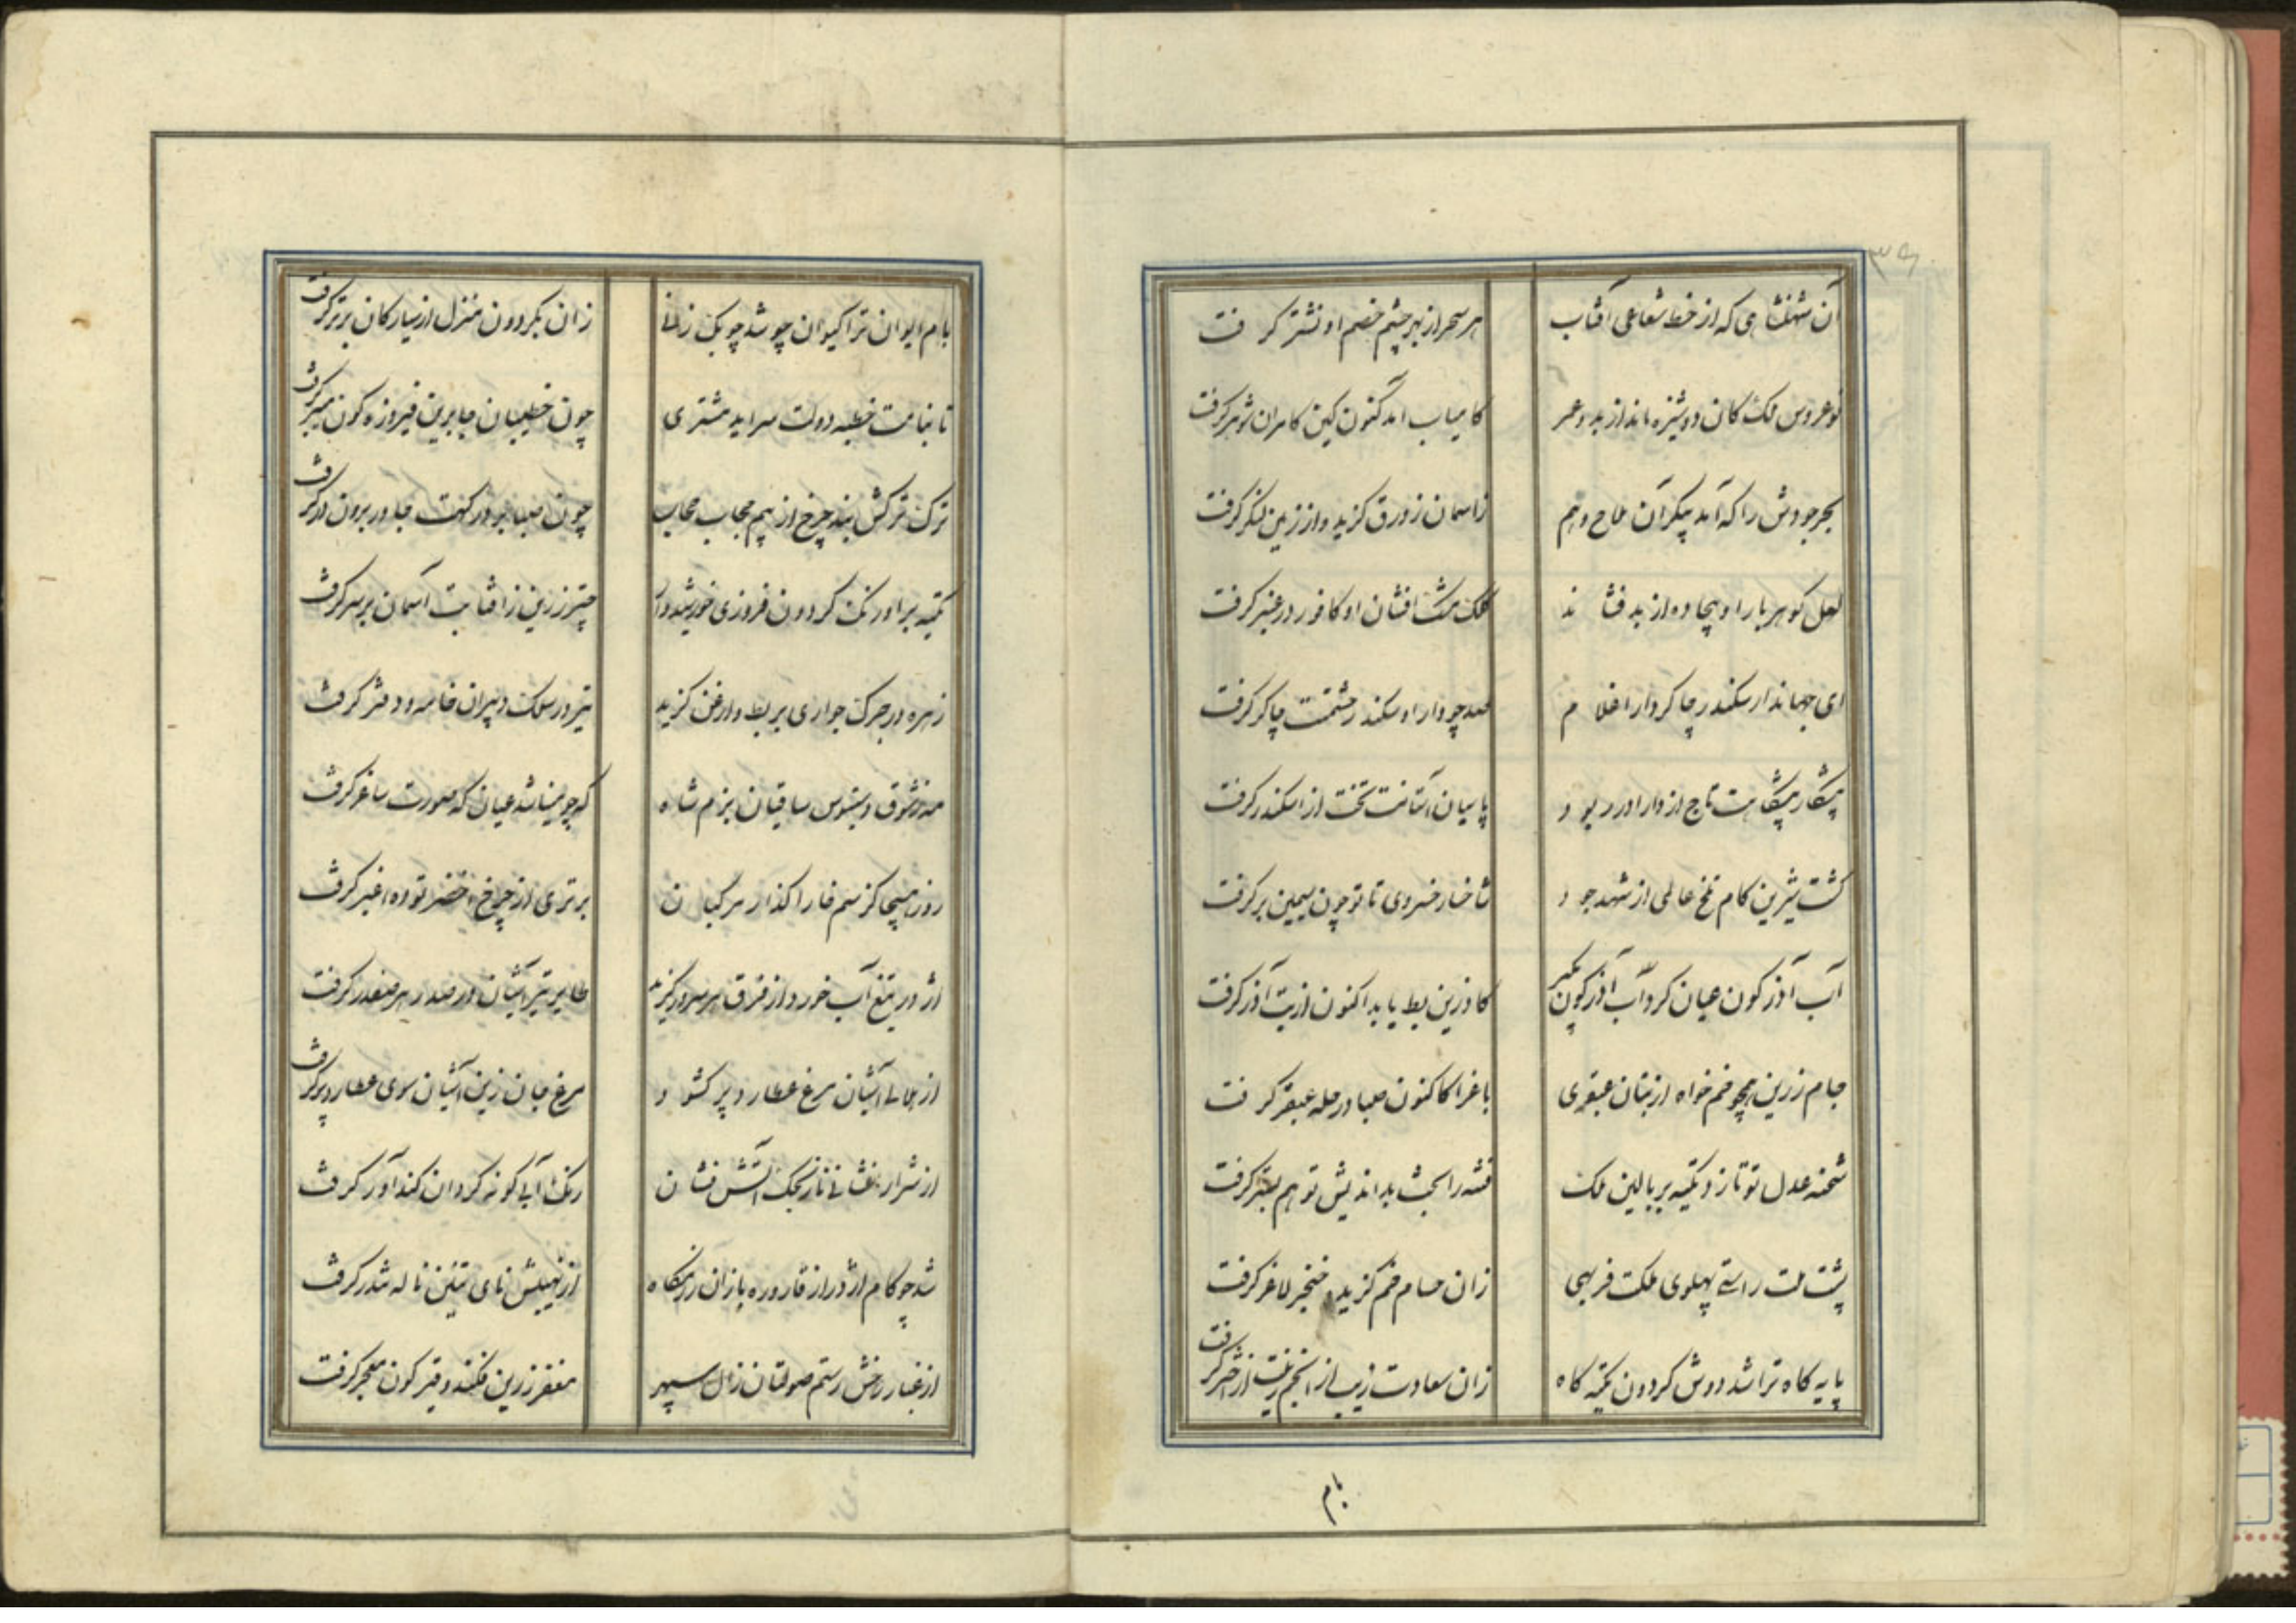 آن شهنشاهی که از خط شعاعی آفتاب
هر سحر از بهر چشم خصم او نشتر کرفت
نوعروس ملک کان دوشیزه ماند از بدو عمر
کامیاب آمد کنون کین کامران شوهر کرفت
بحر جودش را که آمد بیکران ملاح وهم
زاسمان زورق کزید و از زمین لنکر کرفت
لعل کوهربار او بیجاده از بد فشاند
کلک مشک افشان او کافور در عنبر کرفت
ای جهاندار سکندر چاکر دارا غلام
صد چو دارا و سکندر حشمتت چاکر کرفت
پیشکار پیشکاهت تاج از دارا درربود
پاسبان آستانت تخت از اسکندر کرفت
کشت شیرین کام تلخ عالمی از شهد جود
شاخسار خسروی تا تو چون سیمین بر کرفت
آب آذرکون عیان کرد آب آذرکون بکیر
کاو زرین بط باید اکنون از بت آذر کرفت
جام زرین همچو خم خواه از بتان عبقری
باغ را کاکنون صبا در حله عبقر کرفت
شحنه عدل تو تا زد تکیه بر بالین ملک
فتنه را بخت بداندیش تو هم بستر کرفت
پشت ملت راستی پهلوی ملکت فربهی
زان حسام خم کزید خنجر لاغر کرفت
پایه کاه ترا شد دوش کردون تکیه کاه
زان سعادت زیب از انجم زینت از اختر کرفت
بام
بام ایوان ترا کیوان چو شد چوبک زنی
زان بکردون منزل از سیارکان برتر کرفت
تا بنامت خطبه دولت سراید مشتری
چون خطیبان جا برین فیروزه کون منبر کرفت
ترک ترکش بند چرخ از بیم حجاب حجاب
چون صبا بر در کهت جا در برون در کرفت
تکیه بر اورنک کردون فروزی خورشیدوار
چتر زرین ز افتابت آسمان بر سر کرفت
زهره در جرک جواری بربط و ارغن کزید
تیر در سلک دبیران خامه و دفتر کرفت
مه ز شوق دستبوس ساقیان بزم شاه
که چو مینا شد عیان که صورت ساغر کرفت
روز هیجا کز سم خارا کذار مرکبان
برتری از چرخ اخضر توده اغبر کرفت
اژدر تیغ آب خورد از فرق هر سرور کزید
طایر تیر آشیان در صدر هر صفدر کرفت
از آشیان مرغ عطارد پر کشود
مرغ جان زین آشیان سوی عطارد پر کرفت
از شرار افشانی نارنجک آتش فشان
رنک آبی کونه کردان کندآور کرفت
شد چو کام اژدر از قاروره باران رزمکاه
از نهیبش نای تنین ناله تندر کرفت
از غبار رخش رستم صولتان زال سپهر
مغفر زرین فکند و قیرکون معجر کرفت